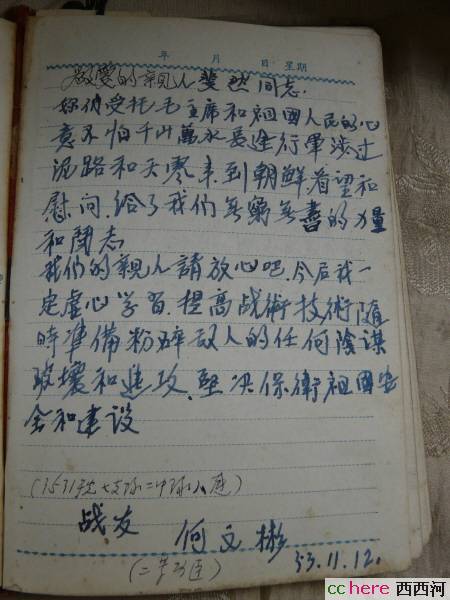 年 月 日 星期
敬爱的親人斐然同志.
你们受托毛主席和祖國人民的心
意不怕千山萬水長途行軍涉过
泥路和天寒来到朝鮮看望和
慰问.给了我们無窮無盡的力量
和鬥志
我们的親人請放心吧.今后我一
定虚心学習.提高战術技術随
時準備粉碎敌人的任何陰謀
破壞和進攻.堅决保衛祖国安
全和建设
战友 何文彬
53.11.12.
cchere 西西河